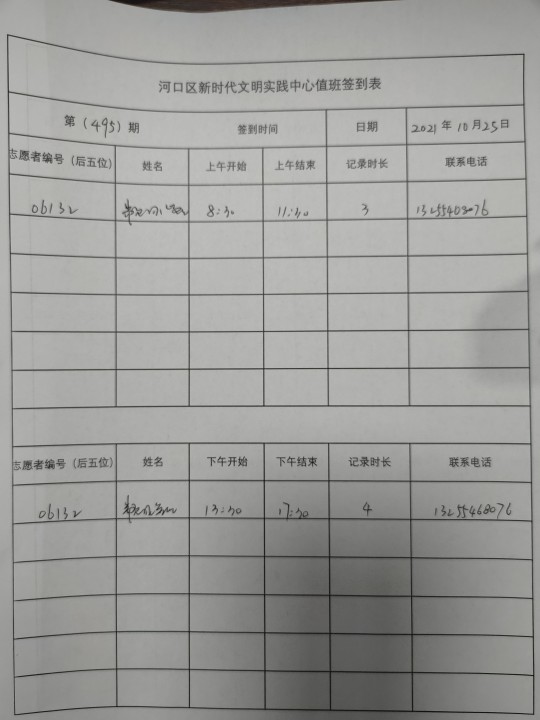 河口区新时代文明实践中心值班签到表
第（495）期 签到时间 日期 2021年10月25日
志愿者编号（后五位） 姓名 上午开始 上午结束 记录时长 联系电话
06132 8:30 11:30 3
志愿者编号（后五位） 姓名 下午开始 下午结束 记录时长 联系电话
06132 13:30 17:30 4 13255468076